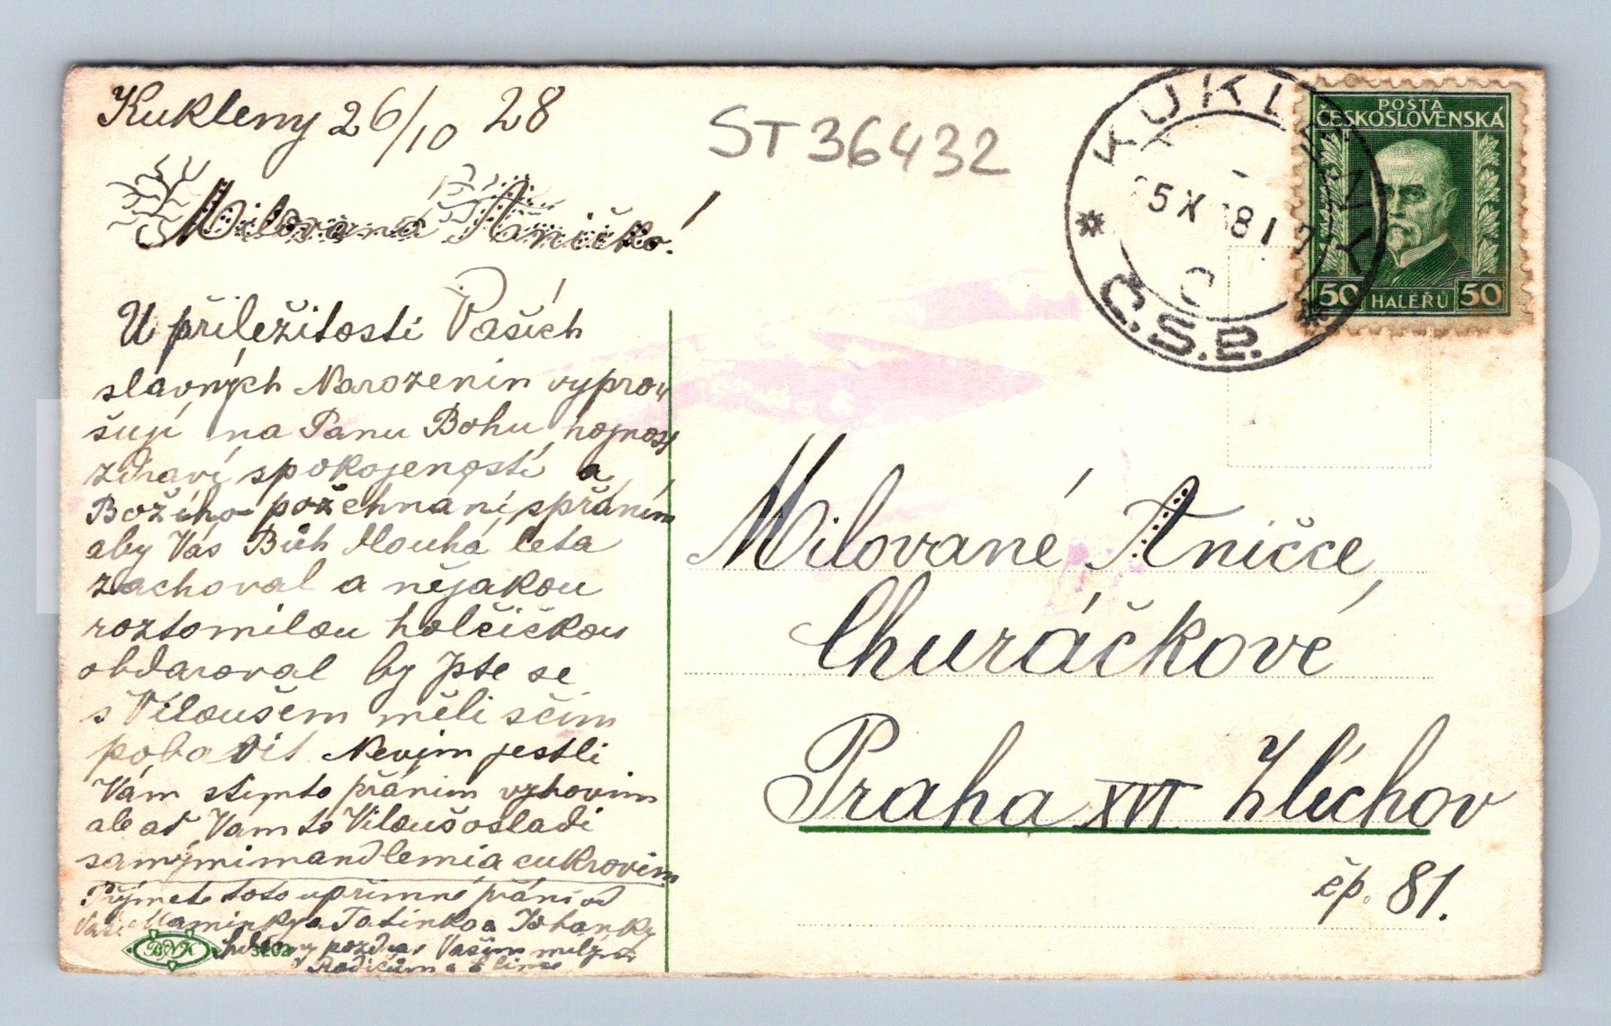 Kukleny 26/10 28
ST36432
Milovaná Aničko!
U přiležitosti Vašich
slavných Narozenin vyprow
šuji na Panu Bohu hojnost
zdraví spokojenosti a
Božího požehnaní spřáním
aby Vás Bůh dlouhá leta
zachoval a nějakou
roztomilou holčičkou
obdaroval by jste se
s Viloušem měli sčim
pobavit Nevjm jestli
Vám stimto přánim vyhovim
ale ať Vám to Viloušosladi
samými mandlemi a cukrovim
Přijmete toto upřimné přáni od
Vaši Maminky a Tatinka a Johanky
Vašim milým
Rodičům a
BNK
KUKLENY
5 X 28 17
Č.S.P.
POŠTA
ČESKOSLOVENSKÁ
50 HALÉŘŮ 50
Milované Aničce,
Churáčkové
Praha XVI Hlichov
čp. 81.